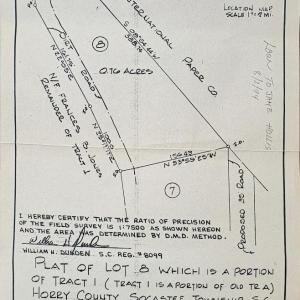 LOCATION MAP
SCALE 1"=2 MI.
INTERNATIONAL
PAPER CO.
DIRT ROAD
8
0.76 ACRES
N/F FRANCES B. JONES
REMAINDER OF TRACT 1
N 55°55'25"W
7
PROPOSED 50' ROAD
LOAN TO JAMES
I HEREBY CERTIFY THAT THE RATIO OF PRECISION
OF THE FIELD SURVEY IS 1:7500 AS SHOWN HEREON
AND THE AREA WAS DETERMINED BY D.M.D. METHOD.
S.C. REG. # 8099
PLAT OF LOT 8 WHICH IS A PORTION
OF TRACT 1 (TRACT 1 IS A PORTION OF OLD TR. A)
HORRY COUNTY, SOCASTEE TOWNSHIP, S.C.